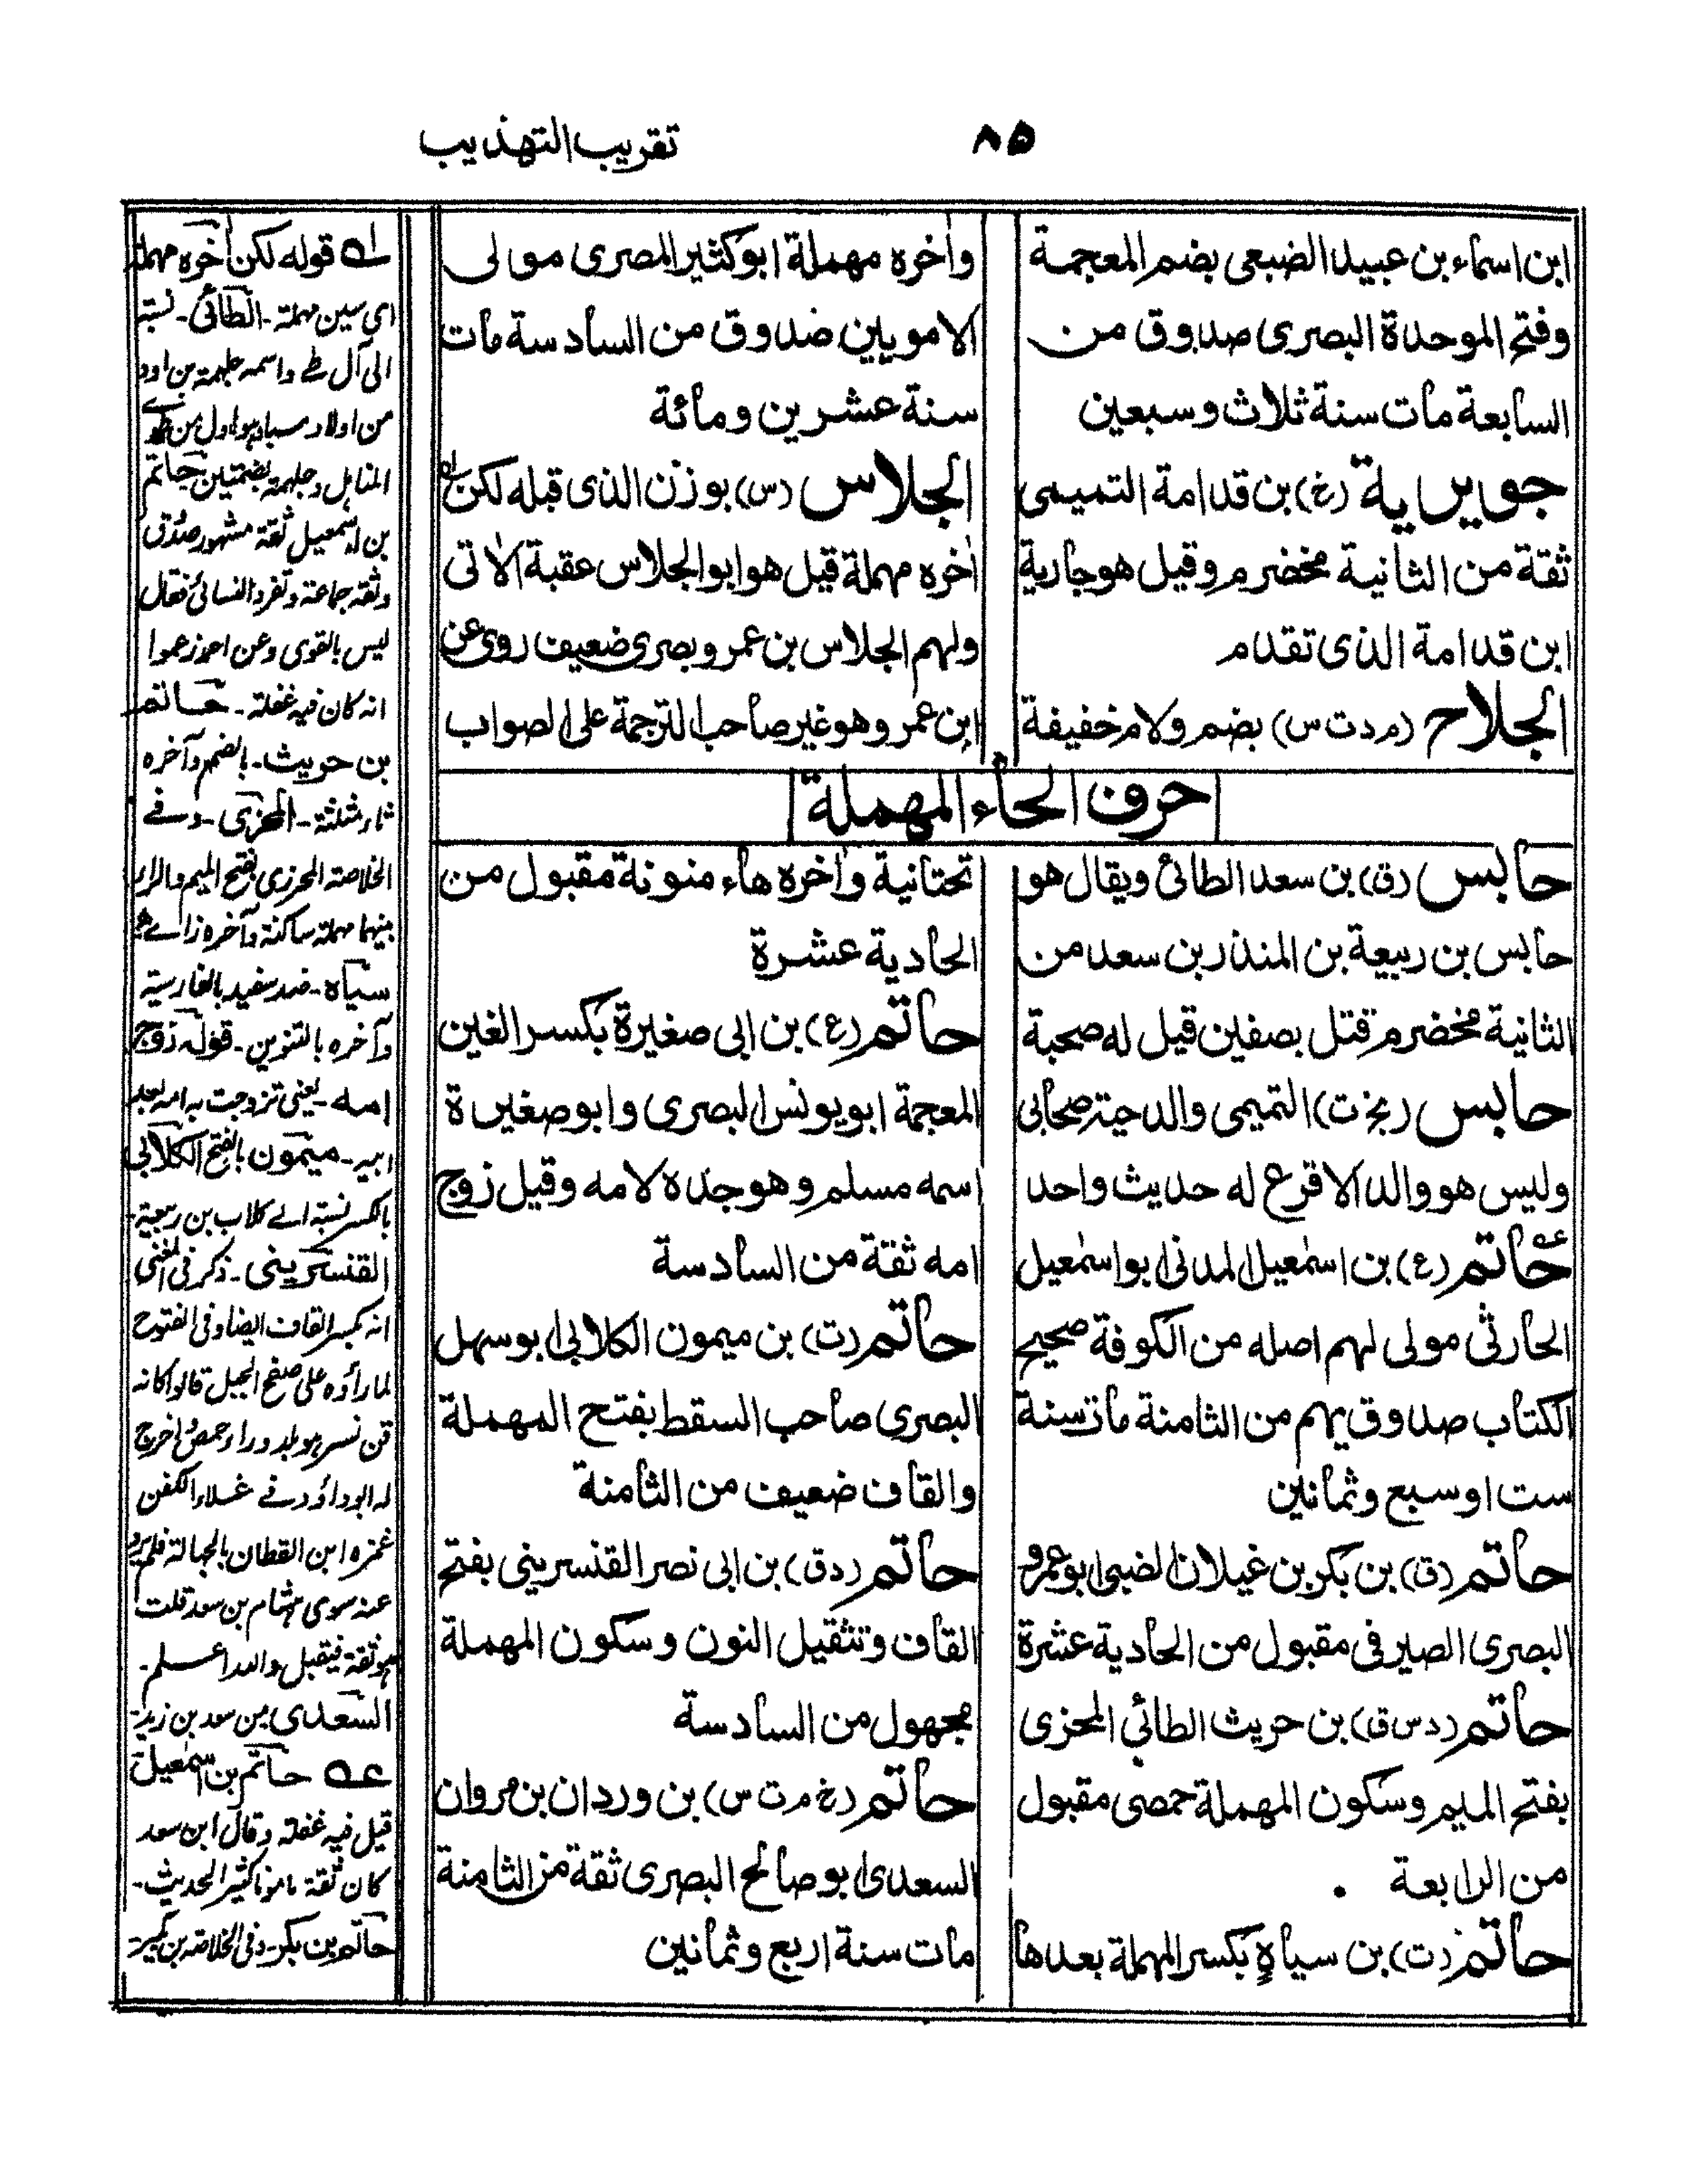 ٨٥
تقريب التهذيب
ابن اسماء بن عبيد الضبعى بضم المعجمة
وفتح الموحدة البصرى صدوق من
السابعة مات سنة ثلاث وسبعين
جويرية (خ) بن قدامة التميمى
ثقة من الثانية مخضرم وقيل هو جارية
ابن قدامة الذى تقدم
الجلاح (م د ت س) بضم ولام خفيفة
واخره مهملة ابو كثير المصرى مولى
الامويين صدوق من السادسة مات
سنة عشرين ومائة
الجلاس (س) بوزن الذى قبله لكن
اخره مهملة قيل هو ابو الجلاس عقبة الاتى
ولهم الجلاس بن عمرو بصرى ضعيف روى عن
ابن عمر وهو غير صاحب الترجمة على الصواب
حرف الحاء المهملة
حابس (ق) بن سعد الطائى ويقال هو
حابس بن ربيعة بن المنذر بن سعد من
الثانية مخضرم قتل بصفين قيل له صحبة
حابس (بخ ت) التميمى والد حية صحابى
وليس هو والد الاقرع له حديث واحد
حاتم (ع) بن اسمعيل المدنى ابو اسمعيل
الحارثى مولى لهم اصله من الكوفة صحيح
الكتاب صدوق يهم من الثامنة مات سنة
ست او سبع وثمانين
حاتم (ق) بن بكر بن غيلان الضبى ابو عمرو
البصرى الصيرفى مقبول من الحادية عشرة
حاتم (د س ق) بن حريث الطائي المحرى
بفتح الميم وسكون المهملة حمصى مقبول
من الرابعة
حاتم (ت) بن سياه بكسر المهملة بعدها
تحتانية واخره هاء منونة مقبول من
الحادية عشرة
حاتم (ع) بن ابى صغيرة بكسر الغين
المعجمة ابو يونس البصرى وابو صغيرة
اسمه مسلم وهو جده لامه وقيل زوج
امه ثقة من السادسة
حاتم (ت) بن ميمون الكلابى ابو سهل
البصرى صاحب السقط بفتح المهملة
والقاف ضعيف من الثامنة
حاتم (د ق) بن ابى نصر القنسرينى بفتح
القاف وتثقيل النون وسكون المهملة
مجهول من السادسة
حاتم (خ م ت س) بن وردان بن مروان
السعدى ابو صالح البصرى ثقة من الثامنة
مات سنة اربع وثمانين
قوله لكن آخره مهملة
اى سين مهملة - الطائى - نسبة
الى آل طے واسمه جلهمة بن اود
من اولاد سبا هو اول من طوے
المناہل وجلهمة بضمتين حاتم
بن اسمعيل ثقة مشهور صدوق
وثقه جماعة وتفرد النسائى فقال
ليس بالقوى وعن احمد زعموا
انه كان فيه غفلة - حاتم
بن حريث - بالضم وآخره
ثاء مثلثة - المحرى - وفے
الخلاصة المحرزى بفتح الميم والراء
بينهما مهملة ساكنة وآخره زاے
سياه - ضد سفيد بالفارسية
وآخره بالتنوين - قوله زوج
امه - يعنى تزوجت به امه بعد
ابيه - ميمون بالفتح الكلابى
بالكسر نسبة الے كلاب بن ربيعة -
القنسرينى - ذكر فى المغنى
انه بكسر القاف ايضا وفى الفتوح
لما رأوه على صفح الجبل قالوا كانه
قن نسر هو بلد وراء حمص اخرج
له ابوداؤد فے غلاء الكفن
غمزه ابن القطان بالجهالة فلم يرو
عنه سوى هشام بن سعد قلت
هو ثقة فيقبل والله اعلم -
السعدى من سعد بن زيد -
عه حاتم بن اسمعيل
قيل فيه غفلة وقال ابن سعد
كان ثقة مامونا كثير الحديث -
حاتم بن بكر - وفى الخلاصه بن بكير -